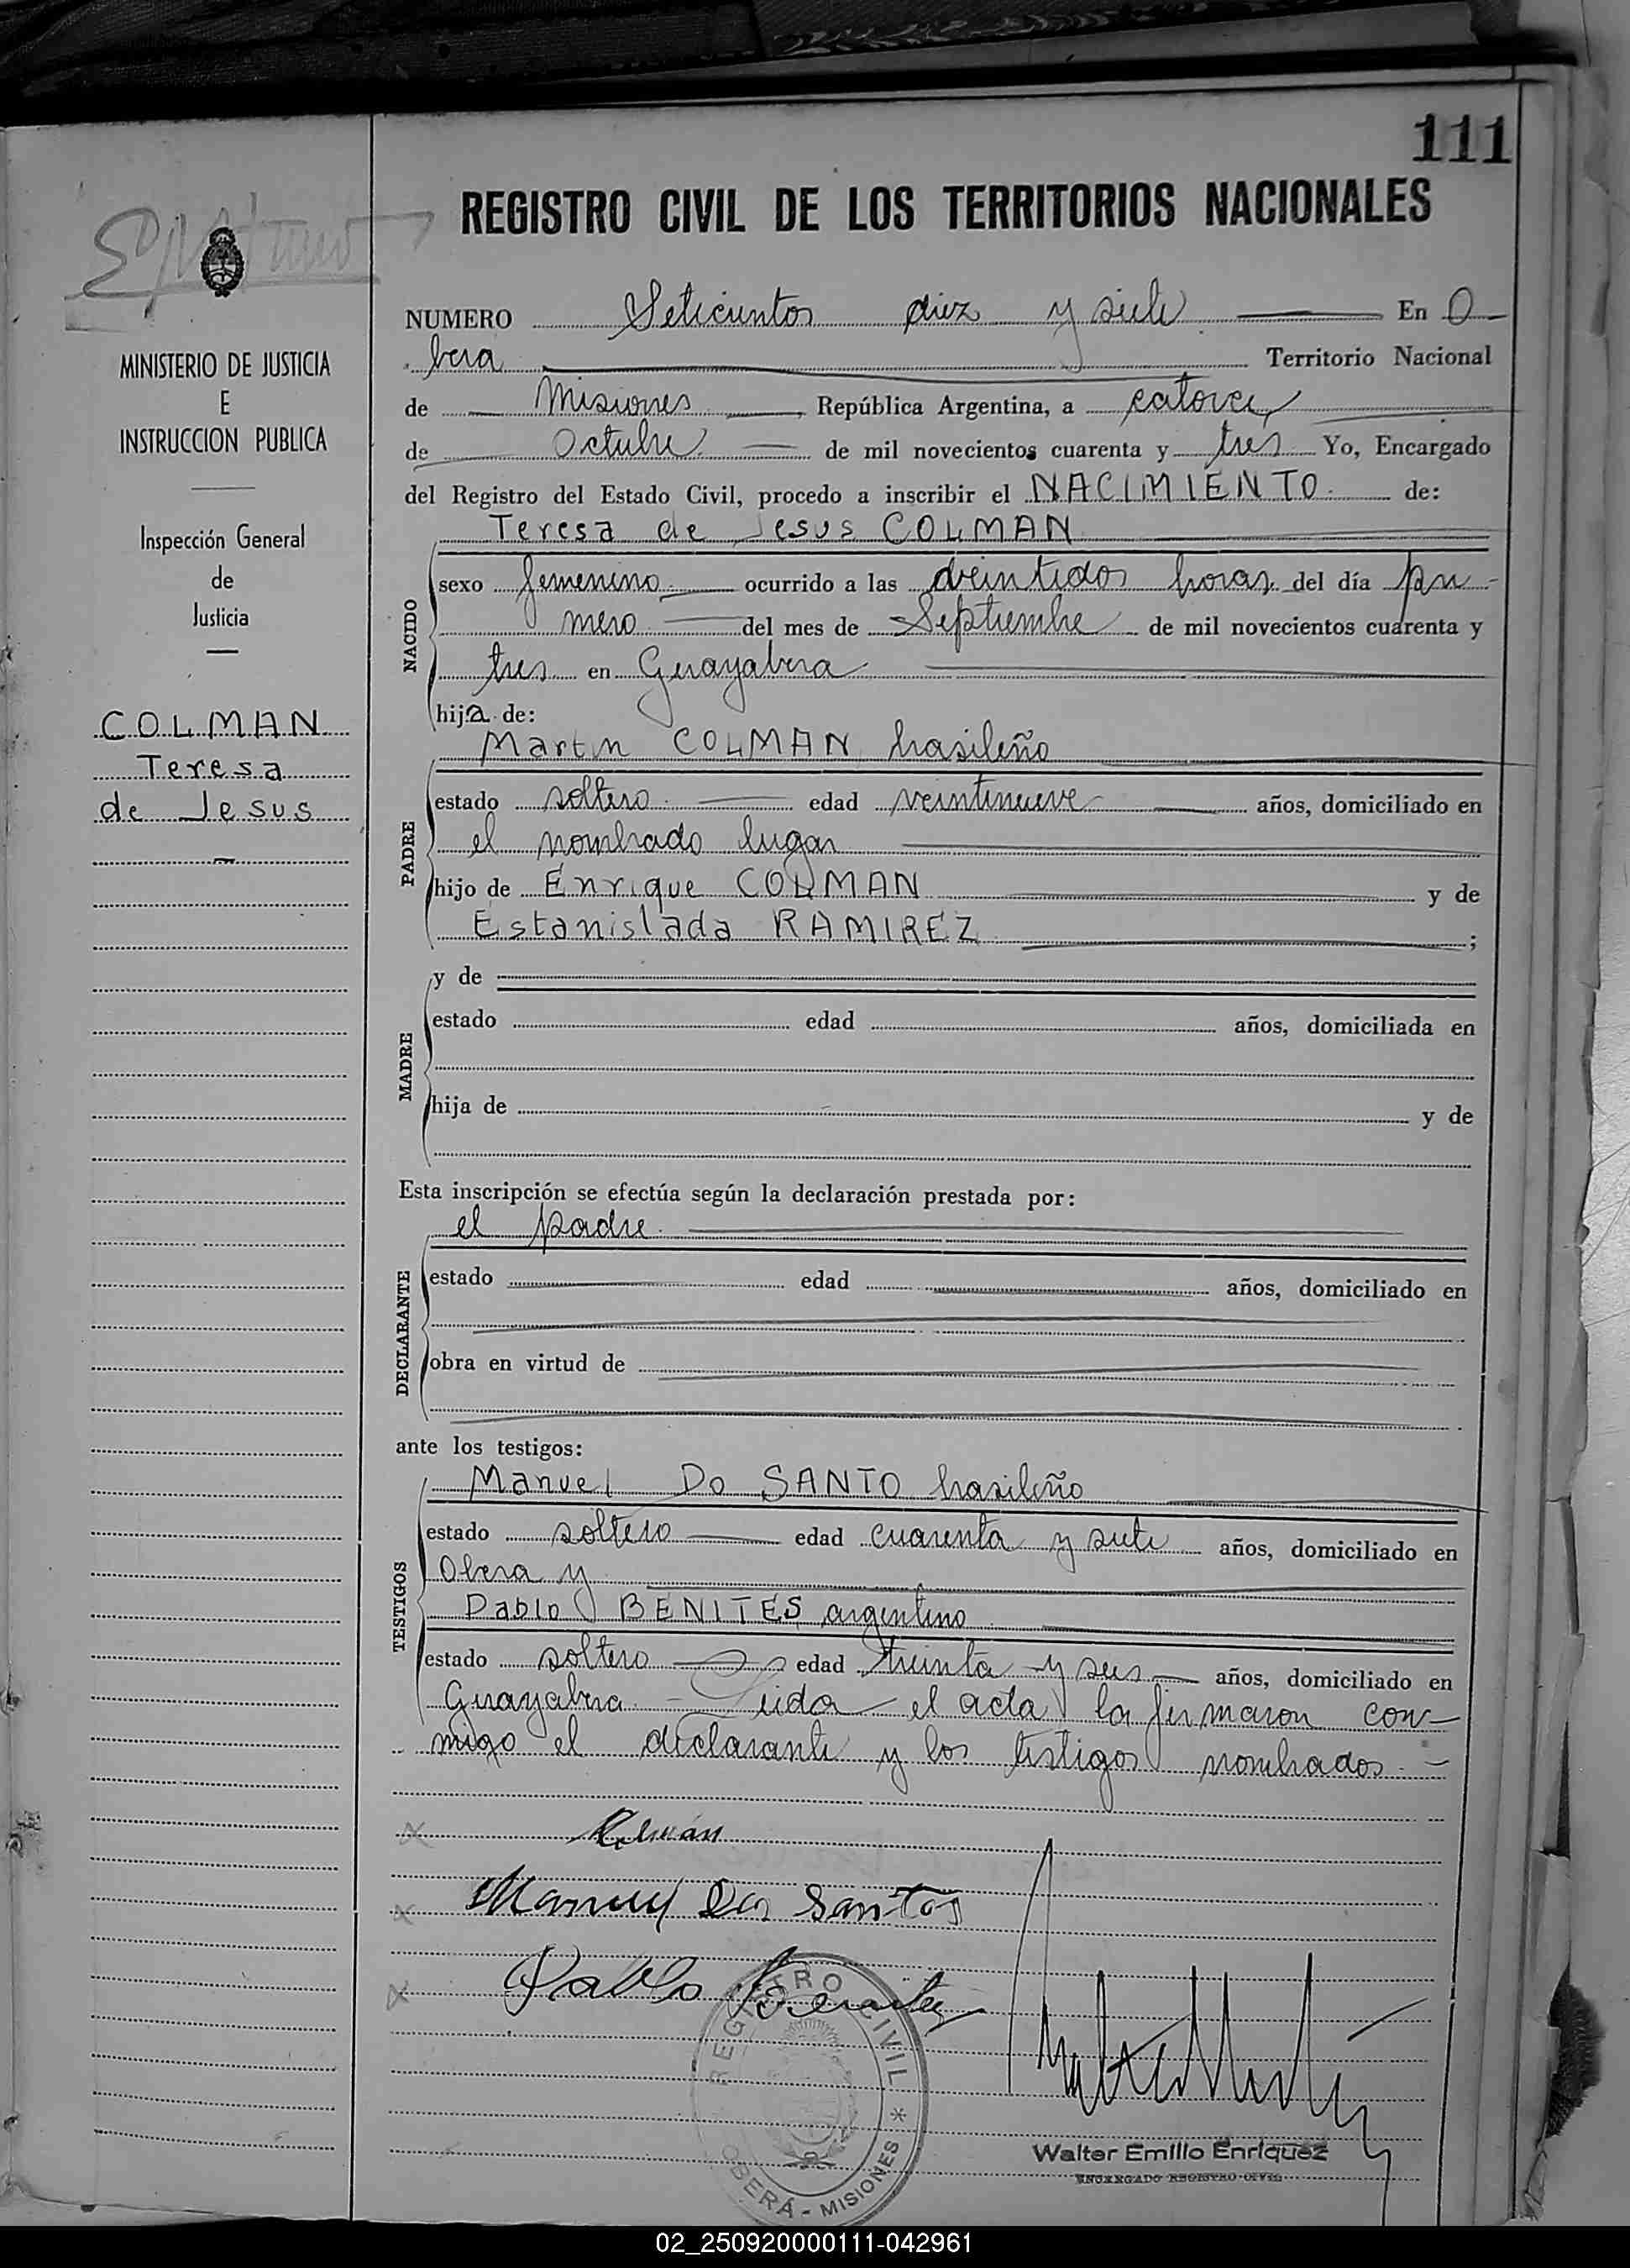 111
REGISTRO CIVIL DE LOS TERRITORIOS NACIONALES
MINISTERIO DE JUSTICIA
E
INSTRUCCION PUBLICA
Inspección General
de
Justicia
COLMAN
Teresa
de Jesus
NUMERO Setecientos diez y siete En O
bera Territorio Nacional
de Misiones, República Argentina, a catorce
de Octubre de mil novecientos cuarenta y tres Yo, Encargado
del Registro del Estado Civil, procedo a inscribir el NACIMIENTO de:
Teresa de Jesus COLMAN
NACIDO
sexo femenino ocurrido a las veintidos horas del día pri-
mero del mes de Septiembre de mil novecientos cuarenta y
tres en Guayabera
hija de:
Martin COLMAN, brasileño
PADRE
estado soltero edad veintinueve años, domiciliado en
el nombrado lugar
hijo de Enrique COLMAN y de
Estanislada RAMIREZ ;
MADRE
y de
estado edad años, domiciliada en
hija de y de
Esta inscripción se efectúa según la declaración prestada por:
el padre
DECLARANTE
estado edad años, domiciliado en
obra en virtud de
ante los testigos:
Manuel Do SANTO brasileño
TESTIGOS
estado soltero edad cuarenta y siete años, domiciliado en
Obera y
Pablo BENITES, argentino
estado soltero edad treinta y seis años, domiciliado en
Guayabera - Leida el acta la firmaron con-
migo el declarante y los testigos nombrados. -
x
x Manuel Dos Santos
x Pablo Benitez
REGISTRO CIVIL * OBERÁ - MISIONES
Walter Emilio Enriquez
ENCARGADO REGISTRO CIVIL
02_250920000111-042961